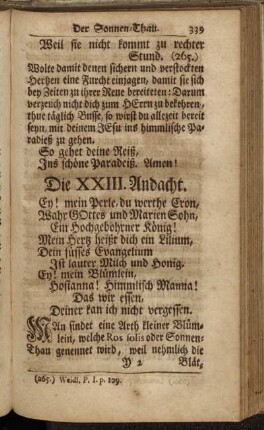 Der Sonnen-Thau. 339
Weil sie nicht kommt zu rechter
Stund. (265.)
Wolte damit denen sichern und verstockten
Hertzen eine Furcht einjagen, damit sie sich
bey Zeiten zu ihrer Neue bereiteten: Darum
verzeuch nicht dich zum HErrn zu bekehren,
thue täglich Busse, so wirst du allezeit bereit
seyn, mit deinem JEsu ins himmlische Pa-
radieß zu gehen.
So gehet deine Reiß,
Ins schöne Paradeiß. Amen!
Die XXIII. Andacht.
Ey! mein Perle, du werthe Cron,
Wahr GOttes und Marien Sohn,
Ein Hochgebohrner König!
Mein Hertz heißt dich ein Lilium,
Dein süsses Evangelium
Ist lauter Milch und Honig.
Ey! mein Blümlein,
Hosianna! Himmlisch Manna!
Das wir essen,
Deiner kan ich nicht vergessen.
MAn findet eine Arth kleiner Blüm-
lein, welche Ros solis oder Sonnen-
Thau genennet wird, weil nehmlich die
Y 2 Blät,
(265.) Weidl. P. I. p. 109.